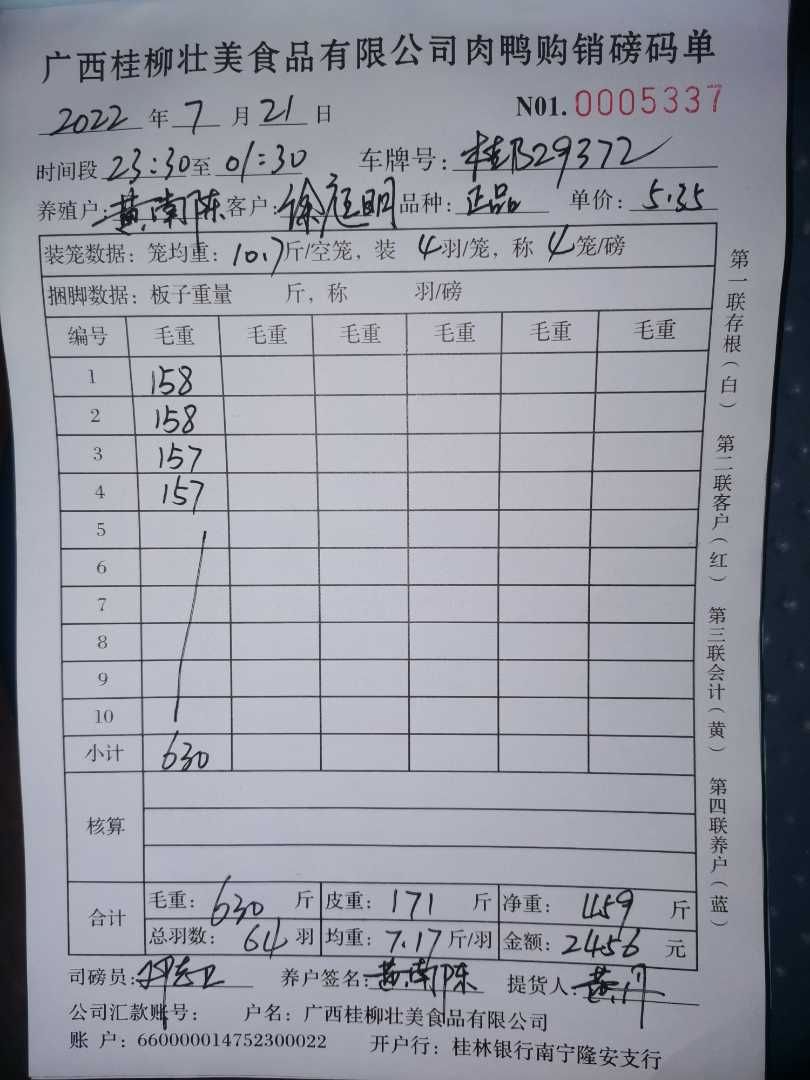 广西桂柳壮美食品有限公司肉鸭购销磅码单
2022 年 7 月 21 日 N01. 0005337
时间段 23:30 至 01:30 车牌号: 桂B29372
养殖户: 黄南陈 客户: 徐庭明 品种: 正品 单价: 5.35
装笼数据: 笼均重: 10.7 斤/空笼, 装 4 羽/笼, 称 4 笼/磅
捆脚数据: 板子重量 斤, 称 羽/磅
编号 毛重 毛重 毛重 毛重 毛重 毛重
1 158
2 158
3 157
4 157
5
6
7
8
9
10
小计 630
核算
合计 毛重: 630 斤 皮重: 171 斤 净重: 459 斤
总羽数: 64 羽 均重: 7.17 斤/羽 金额: 2456 元
司磅员: 养户签名: 黄南陈 提货人:
公司汇款账号: 户名: 广西桂柳壮美食品有限公司
账 户: 660000014752300022 开户行: 桂林银行南宁隆安支行
第一联存根(白) 第二联客户(红) 第三联会计(黄) 第四联养户(蓝)